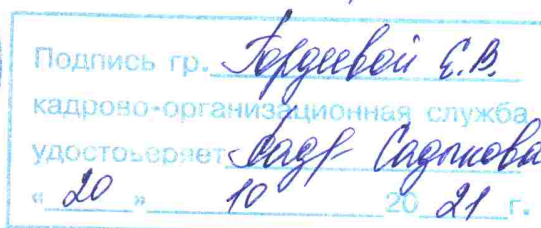 Подпись гр. Гордеевой Е.В.
кадрово-организационная служба
удостоверяет Садыкова
« 20 » 10 20 21 г.